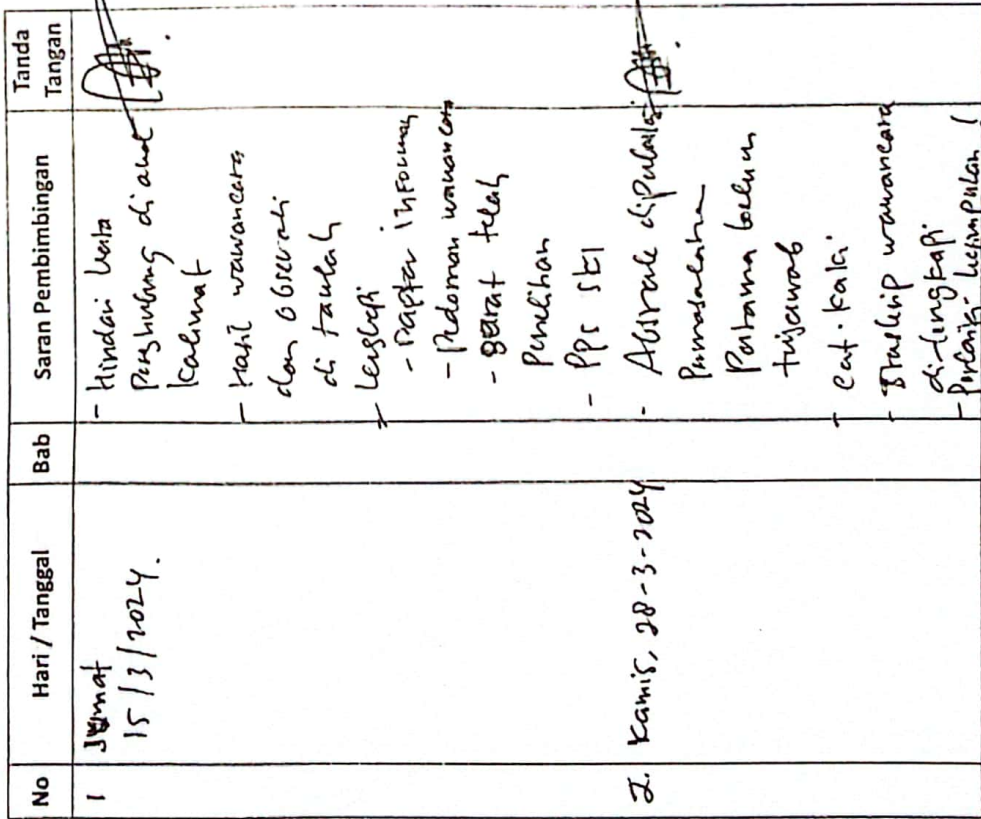 No
Hari / Tanggal
Bab
Saran Pembimbingan
Tanda
Tangan
1
Jumat
15/3/2024.
- Hindari kata
penghubung di awal
kalimat
- Hasil wawancara
dan observasi
di
- Lengkapi
- Daftar informan
- Pedoman wawancara
- Surat telah
penelitian
- PPS SK1
2. Kamis, 28-3-2024
- Abstrak
Pertama belum
terjawab
- cat. kaki
- wawancara
dilengkapi